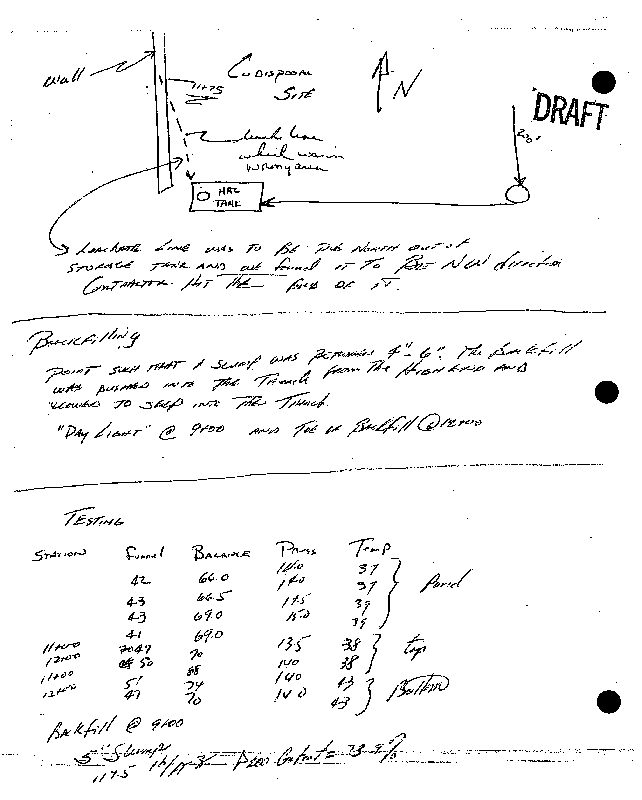 wall
11+75
Codisposal
Site
N
DRAFT
leach line
which was in
wrong area
HAC
TANK
Leachate Line was to be the North out of
storage tank and we found it to be NW direction
Contractor hit the end of it.
Backfilling
Point such that a slump was between 4"- 6". The Backfill
was pushed into the Trench from the High end and
allowed to seep into the Trench.
"Day Light" @ 9+00 and Toe of Backfill @
Testing
Station Funnel Balance Press Temp
42 66.0 140 37
43 66.5 140 37
43 69.0 145 39
41 69.0 150 39
Pond
11+00 47 70 135 38
12+00 50 68 140 38
top
11+00 51 74 140 43
12+00 47 70 140 43
Bottom
Backfill @ 9+00
5" Slump